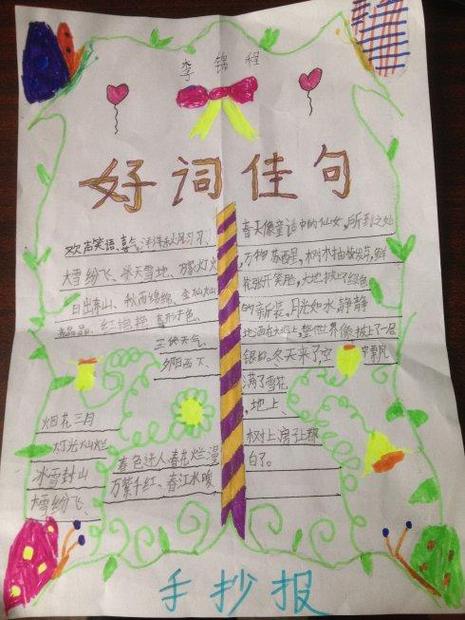 李锦程
好词佳句
欢声笑语、喜气洋洋、秋风习习、
大雪纷飞、冰天雪地、万家灯火
日出东山、秋雨绵绵、金灿灿
红
三伏天气、
夕阳西下、
烟花三月
灯光灿烂
冰雪封山
大雪纷飞、
春色迷人春花烂漫
万紫千红、春江水暖
春天像童话中的仙女,所到之处
,万物苏醒,树木抽出发芽,鲜
花张开笑脸,大地披上了绿色
的新装。月光如水静静
地洒在大地上,整世界像披上了一层
银白。冬天来了空中飘
满了雪花
,地上、
树上房上都
白了。
手抄报